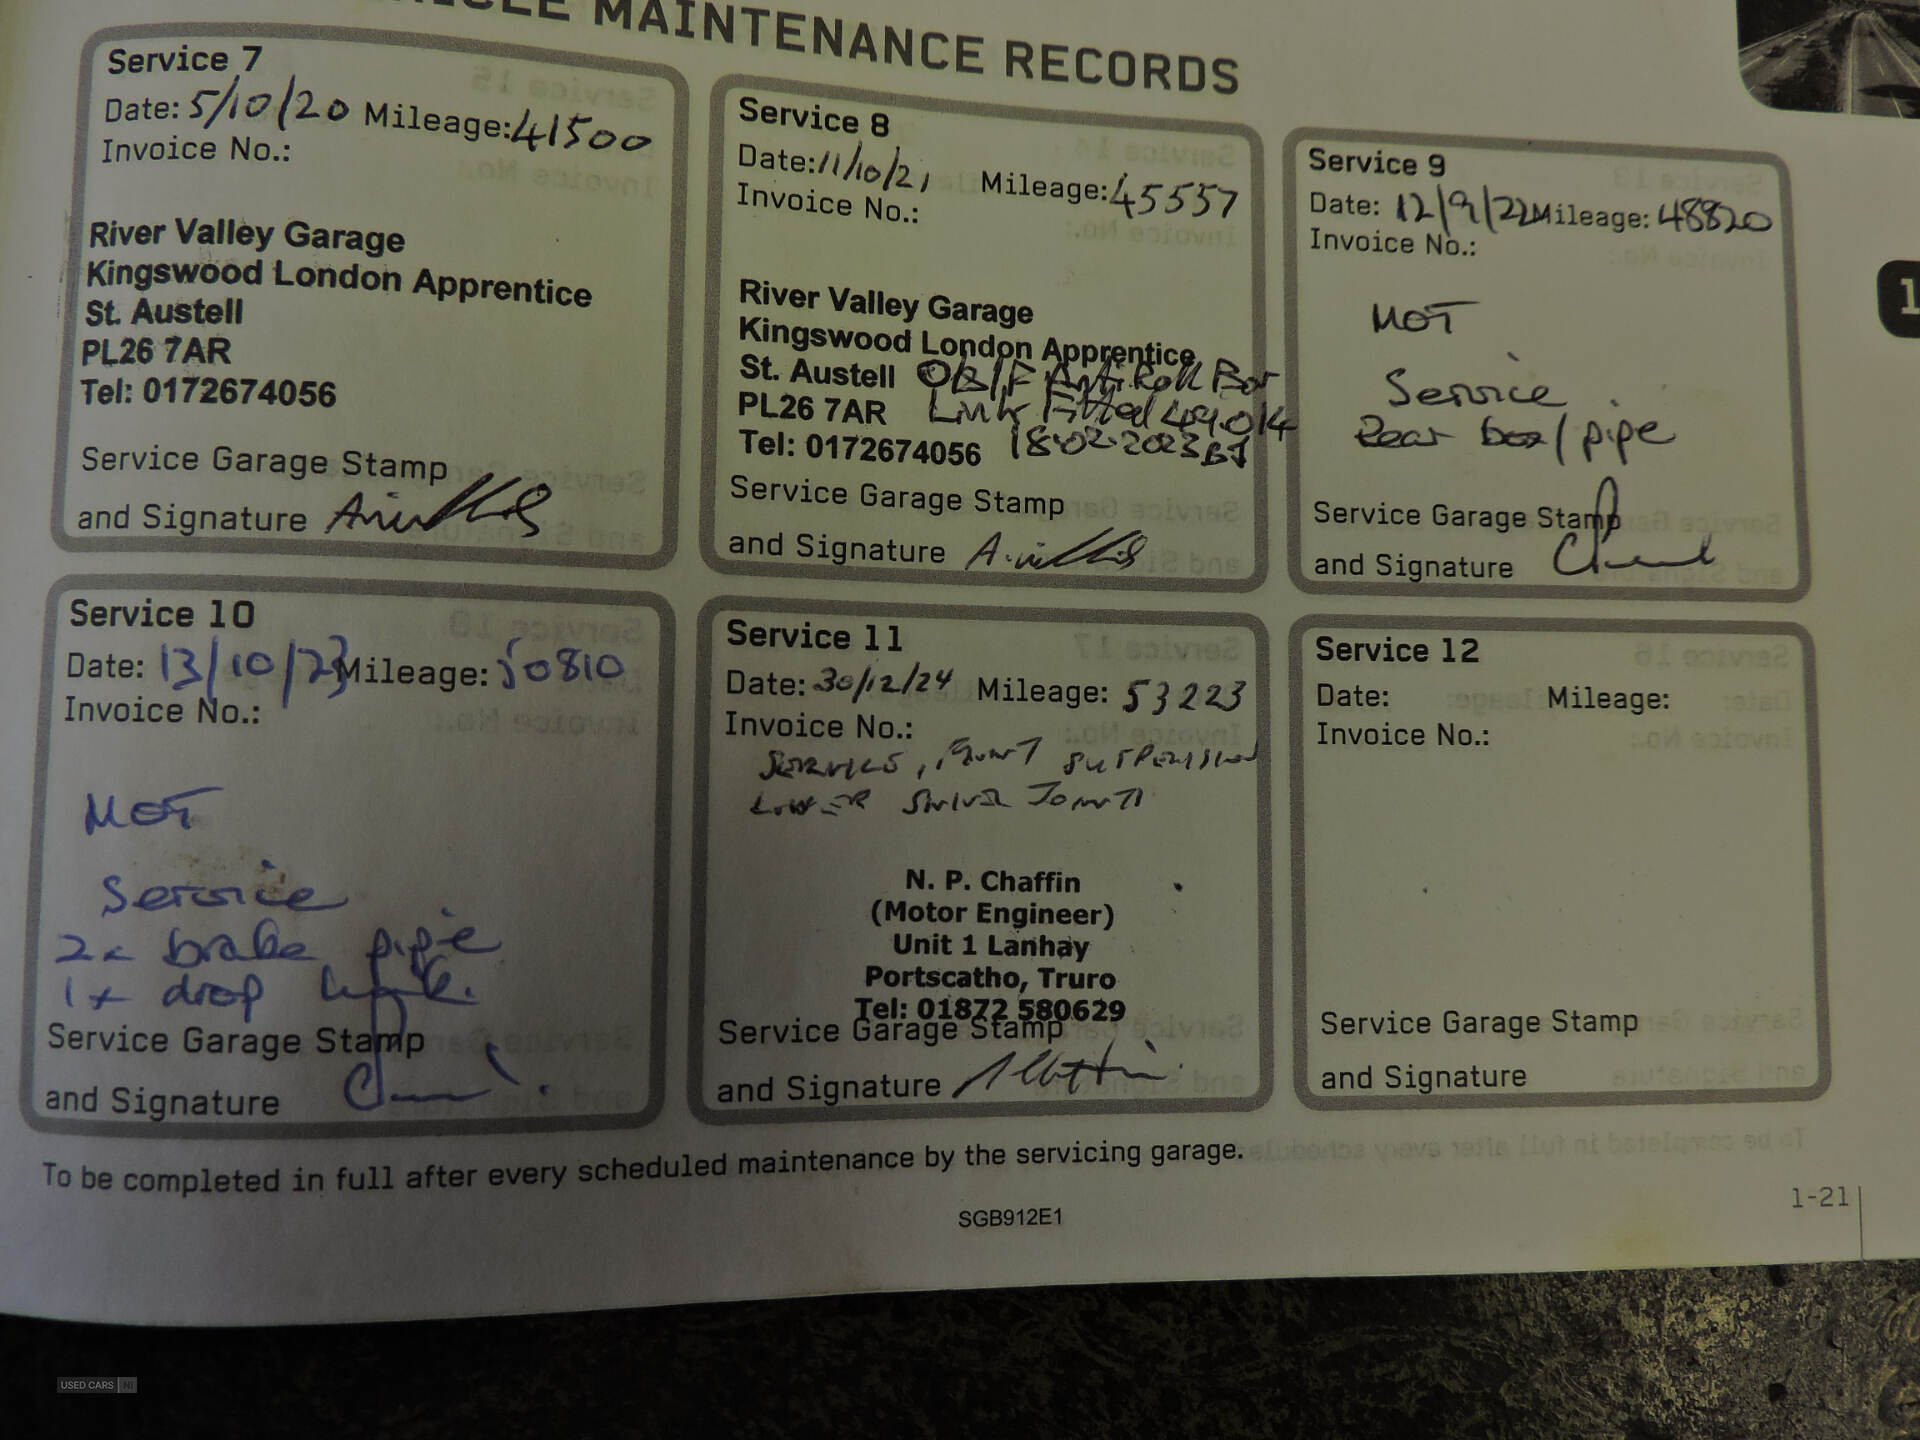 VEHICLE MAINTENANCE RECORDS
Service 7
Date: 5/10/20 Mileage: 41500
Invoice No.:
River Valley Garage
Kingswood London Apprentice
St. Austell
PL26 7AR
Tel: 0172674056
Service Garage Stamp
and Signature
Service 8
Date: 11/10/21 Mileage: 45557
Invoice No.:
River Valley Garage
Kingswood London Apprentice
St. Austell O/S/F Anti Roll Bar
PL26 7AR Link Fitted 49.014
Tel: 0172674056 18.02.2023 BJ
Service Garage Stamp
and Signature
Service 9
Date: 12/9/22 Mileage: 48820
Invoice No.:
MOT
Service
Rear box/pipe
Service Garage Stamp
and Signature
1
Service 10
Date: 13/10/23 Mileage: 50810
Invoice No.:
MOT
Service
2x brake pipe
1x drop link.
Service Garage Stamp
and Signature
Service 11
Date: 30/12/24 Mileage: 53223
Invoice No.:
SERVICE, FRONT SUSPENSION
LOWER SWIVEL JOINTS
N. P. Chaffin
(Motor Engineer)
Unit 1 Lanhay
Portscatho, Truro
Tel: 01872 580629
Service Garage Stamp
and Signature
Service 12
Date: Mileage:
Invoice No.:
Service Garage Stamp
and Signature
To be completed in full after every scheduled maintenance by the servicing garage.
SGB912E1
1-21
USED CARS NI